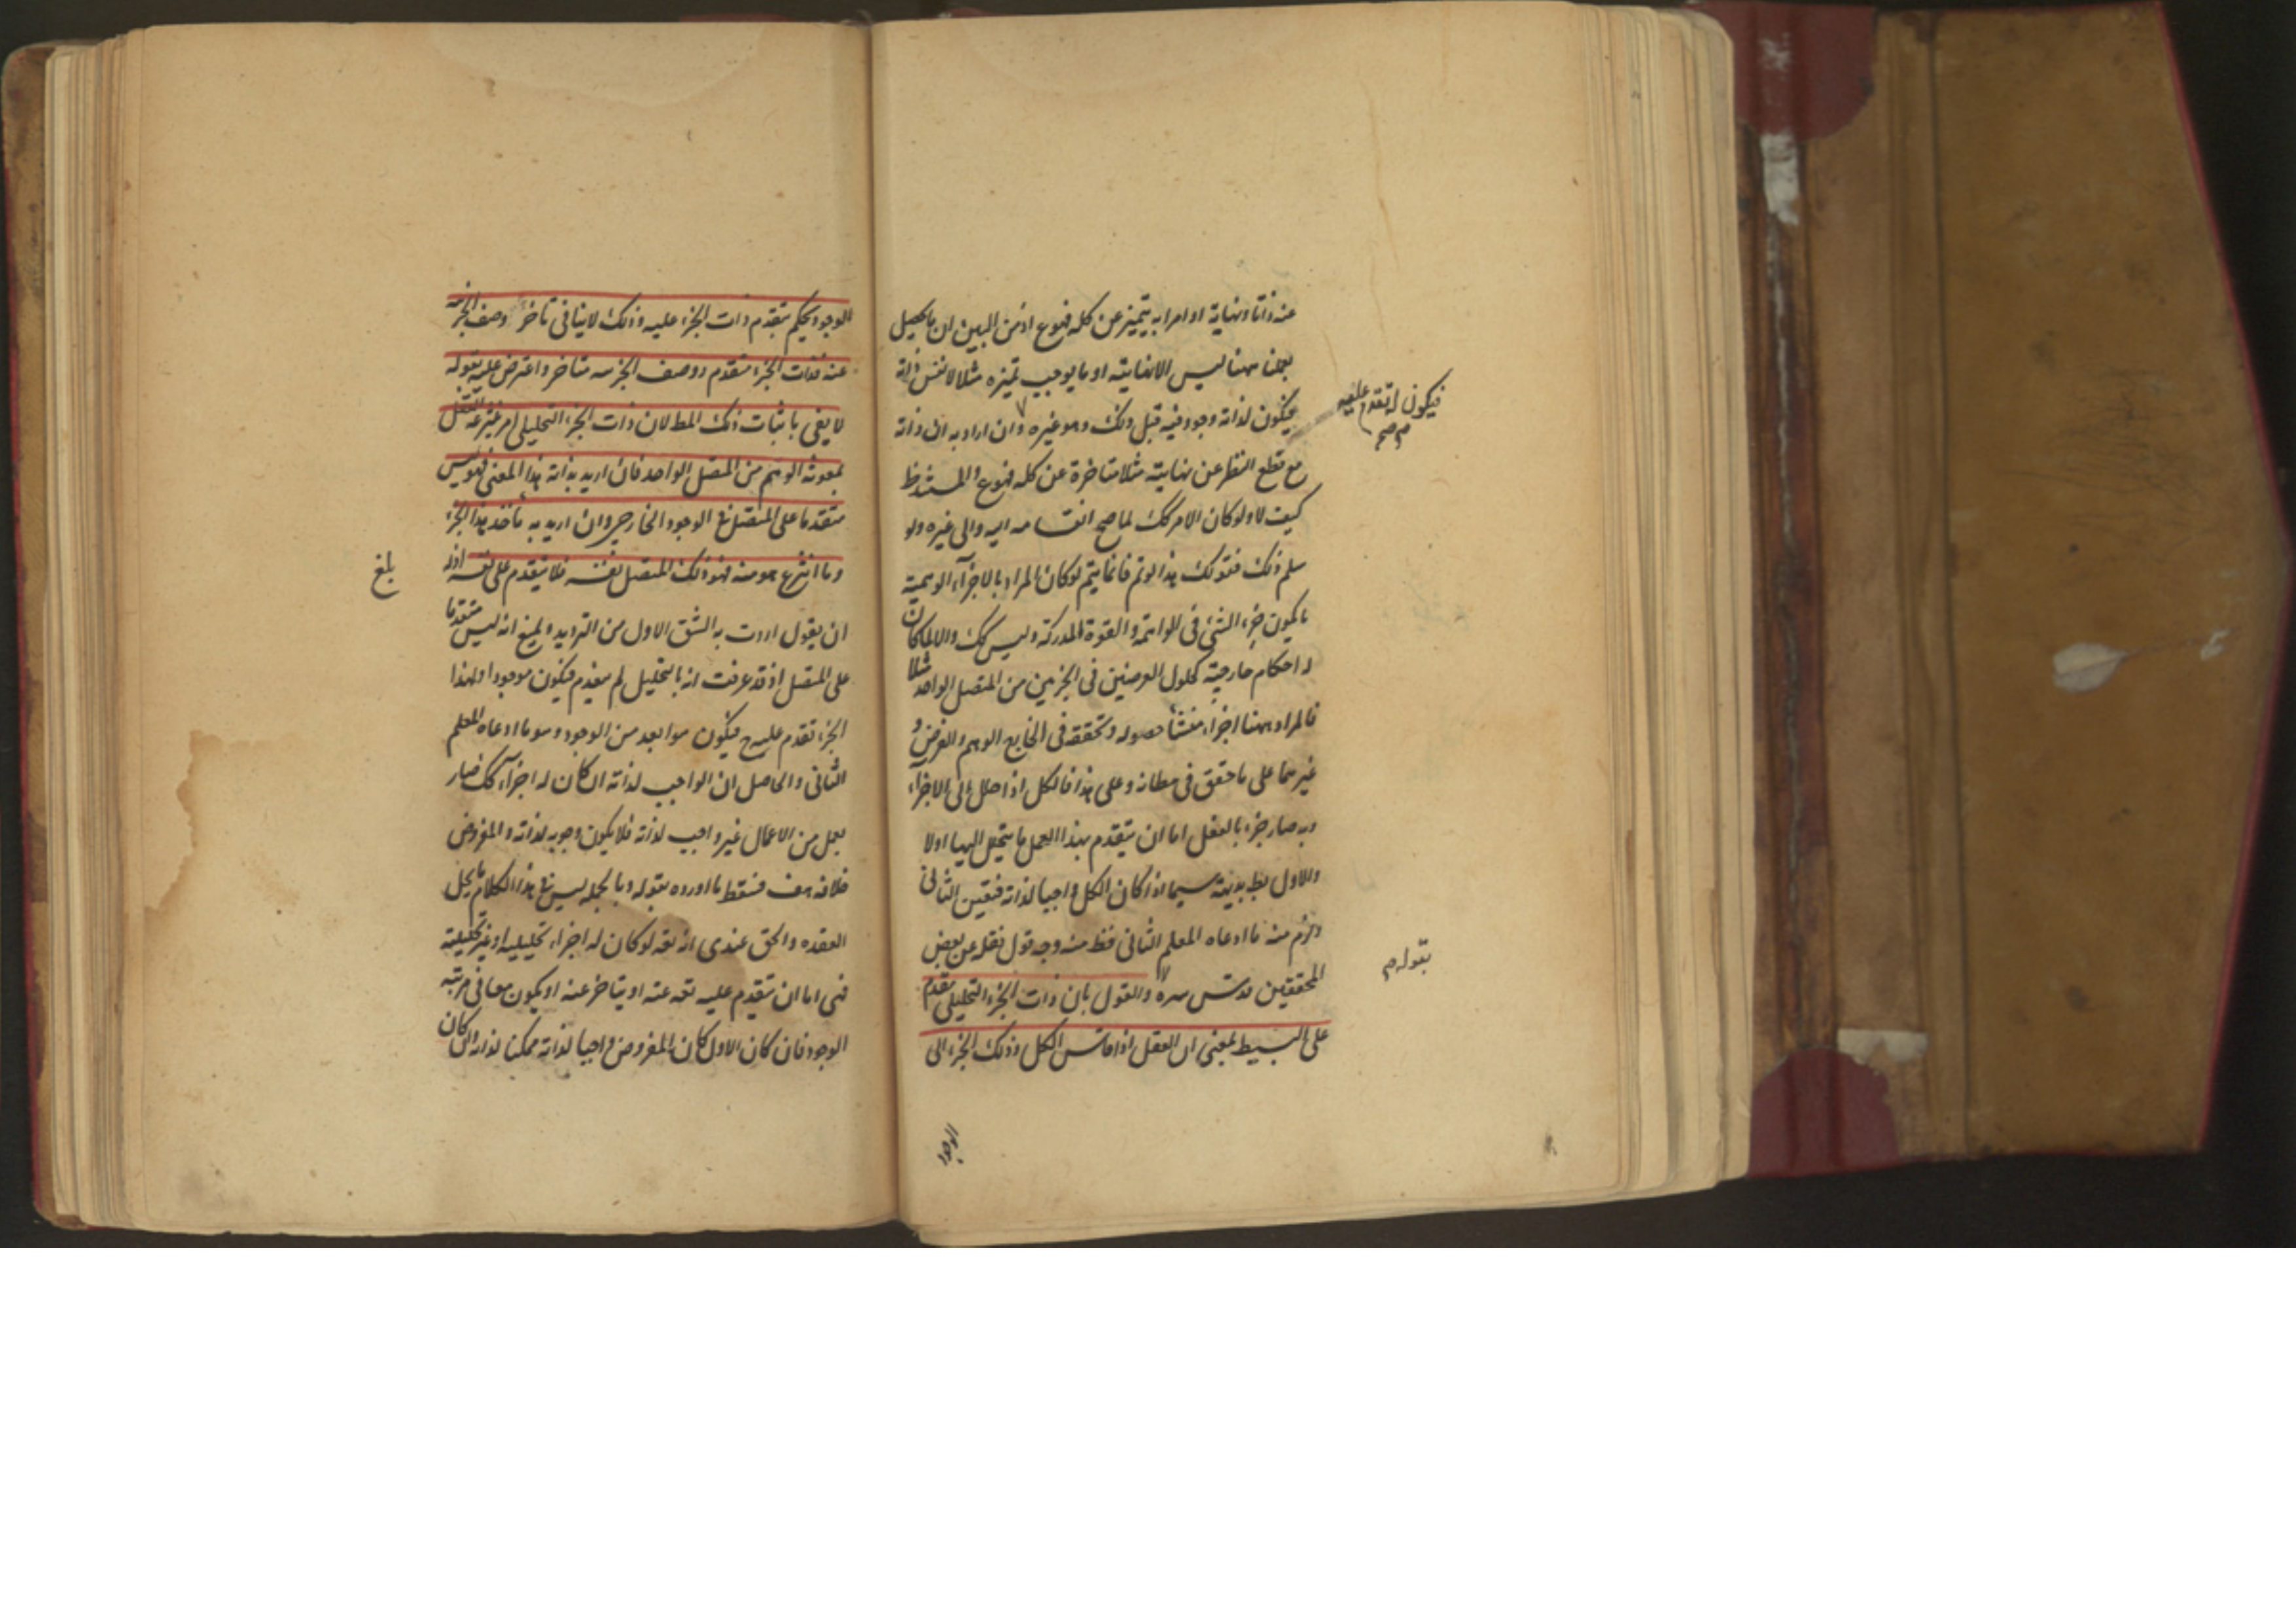 عنه ذاتا ونهاية او امرا به يتميز عن كله فهوع اذ من البين ان ما يحصل
بعملنا ههنا ليس الا نهايته او ما يوجب تميزه مثلا لا نفس ذاته
فيكون لذاته وجود فيه قبل ذلك وهو غيره وان اراد به ان ذاته
فيكون له تقدم عليه
صح
مع قطع النظر عن نهايته مثلا متاخرة عن كله فهوع والمستند ظ
كيف لا ولو كان الامر كك لما صح انقسامه اليه والى غيره ولو
سلم ذلك فقولك هذا لو تم فانما يتم لو كان المراد بالاجزاء الوهمية
ما يكون جزء الشئ فى الواهمة والقوة المدركة وليس كك والا لما كان
له احكام خارجية كحلول العرضين فى الجزئين من المتصل الواحد مثلا
فالمراد ههنا اجزاء منشأ حصوله وتحققه فى الخارج الوهم والفرض و
غيرهما على ما حقق فى مظانه وعلى هذا فالكل اذا حلل الى الاجزاء
وبه صار جزء بالفعل اما ان يتقدم بهذا العمل ما يتحلل اليها اولا
والاول بط بديهة سيما اذا كان الكل واجبا لذاته فتعين الثانى
ولزم منه ما ادعاه المعلم الثانى فظ منه وجه قول نقله عن بعض
بقوله
المحققين قدس سره والقول بان ذات الجزء التحليلى تقدم
على البسيط بمعنى ان العقل اذا قاس الكل وذلك الجزء الى
الوجود
الوجود يحكم بتقدم ذات الجزء عليه وذلك لا ينافى تاخر وصف الجزئية
عنه فذات الجزء متقدم ووصف الجزئية متاخر واعترض عليه بقوله
لا يفى باثبات ذلك المط لان ذات الجزء التحليلى امر ينتزعه العقل
بمعونة الوهم من المتصل الواحد فان اريد بذاته هذا المعنى فهو ليس
متقدما على المتصل فى الوجود الخارجى وان اريد به ماخذ هذا الجزء
وما انتزع هو منه فهو ذلك المتصل نفسه فلا يتقدم على نفسه اذ له
بلغ
ان يقول اردت به الشق الاول من الترديد ولمنع انه ليس متقدما
على المتصل اذ قد عرفت انه بالتحليل لم ينعدم فيكون موجودا ولهذا
الجزء تقدم عليه ح فيكون هو ابعد من الوجود وهو ما ادعاه المعلم
الثانى والحاصل ان الواجب لذاته ان كان له اجزاء كك فصار
بعمل من الاعمال غير واجب لذاته فلا يكون وجوبه لذاته والمفروض
خلافه هف فسقط ما اورده بقوله وبالجملة ليس فى هذا الكلام ما يحل
العقدة والحق عندى انه تعه لو كان له اجزاء تحليلية او غير تحليلية
فهى اما ان يتقدم عليه تعه عنه او يتاخر عنه او يكون معا فى مرتبة
الوجود فان كان الاول كان المفروض واجبا لذاته ممكنا لذاته وان كان